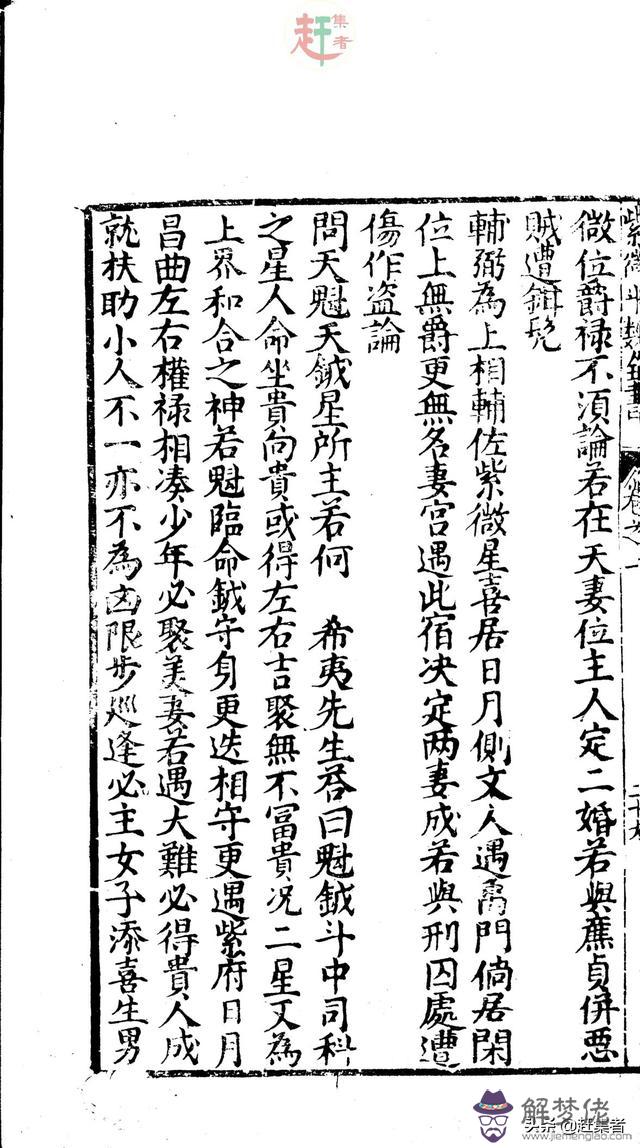 赶集者
紫微斗數全書 卷之一 二十九
微位爵禄不須論若在天妻位主人定二婚若與廉貞併惡
賊遭鉗髡
輔弼為上相輔佐紫微星喜居日月側文人遇禹門倘居閑
位上無爵更無名妻宫遇此宿决定两妻成若與刑囚處遭
傷作盗論
問天魁天鉞星所主若何 希夷先生荅曰魁鉞斗中司科
之星人命坐貴向貴或得左右吉聚無不冨貴况二星又為
上界和合之神若魁臨命鉞守身更迭相守更遇紫府日月
昌曲左右權禄相凑少年必聚美妻若遇大難必得貴人成
就扶助小人不一亦不為凶限步廵逢必主女子添喜生男
解梦佬
www.jiemenglao.com
头条 @赶集者